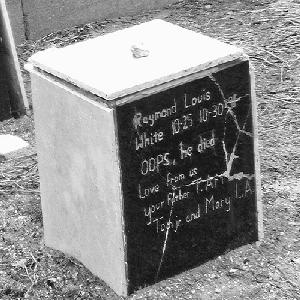 Raymond Louis
White 10-25 10-30
OOPS, he died
Love from us
your Father T. Art
Tom jr and Mary L.A.